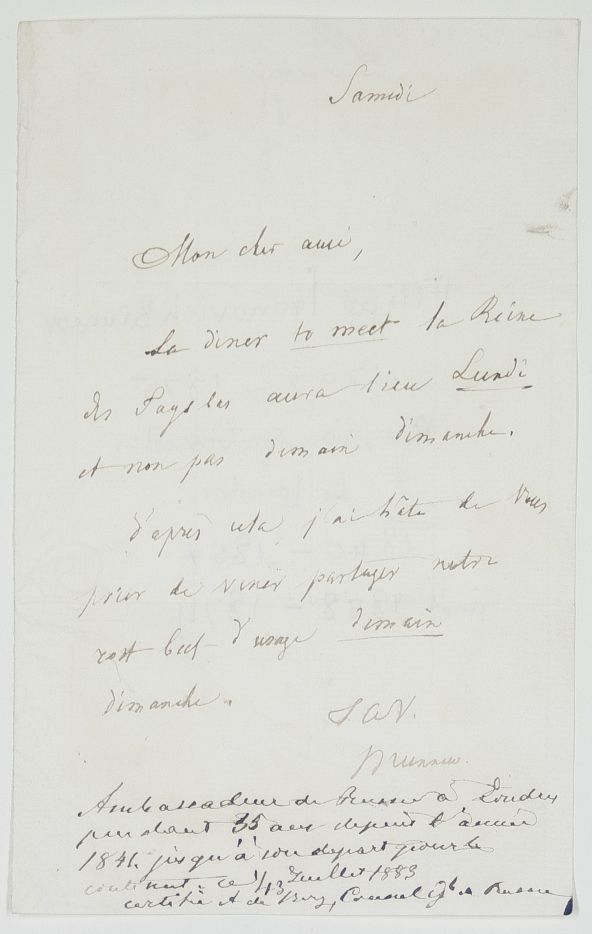 Samedi
Mon cher ami,
Le diner to meet la Reine
des Pays bas aura lieu Lundi
et non pas demain dimanche.
d'après cela j'ai hâte de Vous
prier de venir partager notre
rost beef d'usage demain
dimanche.
T. a V.
Brunnow.
Ambassadeur de Russie à Londres
pendant 35 ans depuis l'année
1841. jusqu'à son depart pour le
continent. ce 1/13 Juillet 1883
certifié A de Berg, Consul Gl de Russie